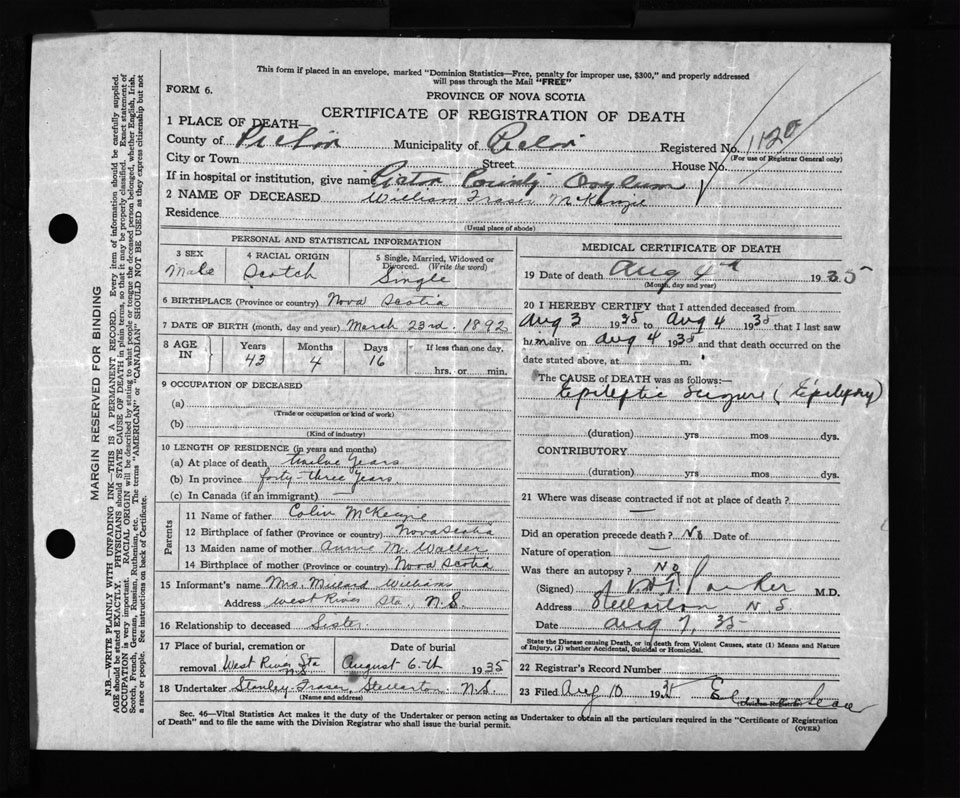 This form if placed in an envelope, marked "Dominion Statistics—Free, penalty for improper use, $300," and properly addressed
will pass through the Mail "FREE"
FORM 6.
PROVINCE OF NOVA SCOTIA
CERTIFICATE OF REGISTRATION OF DEATH
1 PLACE OF DEATH—
County of Pictou Municipality of Pictou Registered No. 1120
(For use of Registrar General only)
City or Town Street House No.
If in hospital or institution, give name Pictou County Asylum
2 NAME OF DECEASED William Fraser McKenzie
Residence
(Usual place of abode)
PERSONAL AND STATISTICAL INFORMATION
3 SEX 4 RACIAL ORIGIN 5 Single, Married, Widowed or
Divorced. (Write the word)
Male Scotch Single
6 BIRTHPLACE (Province or country) Nova Scotia
7 DATE OF BIRTH (month, day and year) March 23rd. 1892
8 AGE IN Years Months Days If less than one day.
43 4 16 hrs. or min.
9 OCCUPATION OF DECEASED
(a)
(Trade or occupation or kind of work)
(b)
(Kind of industry)
10 LENGTH OF RESIDENCE (in years and months)
(a) At place of death twelve years
(b) In province forty-three years
(c) In Canada (if an immigrant)
Parents
11 Name of father Colin McKenzie
12 Birthplace of father (Province or country) Nova Scotia
13 Maiden name of mother Annie M. Waller
14 Birthplace of mother (Province or country) Nova Scotia
15 Informant's name Mrs. Millard Williams
Address West River Sta., N.S.
16 Relationship to deceased Sister
17 Place of burial, cremation or Date of burial
removal West River Sta N.S. August 6th 1935
18 Undertaker Stanley Fraser, Stellarton N.S.
(Name and address)
MEDICAL CERTIFICATE OF DEATH
19 Date of death Aug 4th 1935
(Month, day and year)
20 I HEREBY CERTIFY that I attended deceased from
Aug 3 1935 to Aug 4 1935 that I last saw
him alive on Aug 4 1935 and that death occurred on the
date stated above, at m.
The CAUSE of DEATH was as follows:—
Epileptic Seizure (Epilepsy)
(duration) yrs mos dys.
CONTRIBUTORY
(duration) yrs mos dys.
21 Where was disease contracted if not at place of death?
—
Did an operation precede death? No Date of
Nature of operation —
Was there an autopsy? No
(Signed) Parker M.D.
Address Stellarton N S
Date Aug 7, 35
State the Disease causing Death, or in death from Violent Causes, state (1) Means and Nature
of Injury, (2) whether Accidental, Suicidal or Homicidal.
22 Registrar's Record Number
23 Filed Aug 10 1935
Division Registrar
Sec. 46—Vital Statistics Act makes it the duty of the Undertaker or person acting as Undertaker to obtain all the particulars required in the "Certificate of Registration
of Death" and to file the same with the Division Registrar who shall issue the burial permit.
(OVER)
MARGIN RESERVED FOR BINDING
N.B.—WRITE PLAINLY WITH UNFADING INK—THIS IS A PERMANENT RECORD. Every item of information should be carefully supplied.
AGE should be stated EXACTLY. PHYSICIANS should STATE CAUSE OF DEATH in plain terms, so that it may be properly classified. Exact statement of
OCCUPATION is very important. RACIAL ORIGIN will be described by stating to what people or tongue the deceased person belonged, whether English, Irish,
Scotch, French, German, Russian, Ruthenian, etc. The terms "AMERICAN" or "CANADIAN" SHOULD NOT BE USED as they express citizenship but not
a race or people. See instructions on back of Certificate.